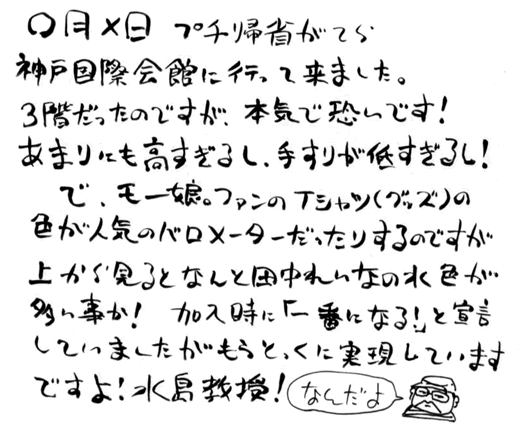 〇月×日 プチ帰省がてら
神戸国際会館に行って来ました。
3階だったのですが、本気で恐いです!
あまりにも高すぎるし、手すりが低すぎるし!
で、モー娘。ファンのTシャツ(グッズ)の
色が人気のバロメーターだったりするのですが
上から見るとなんと田中れいなの水色が
多い事か! 加入時に「一番になる!」と宣言
していましたがもうとっくに実現しています
ですよ!水島教授! なんだよ